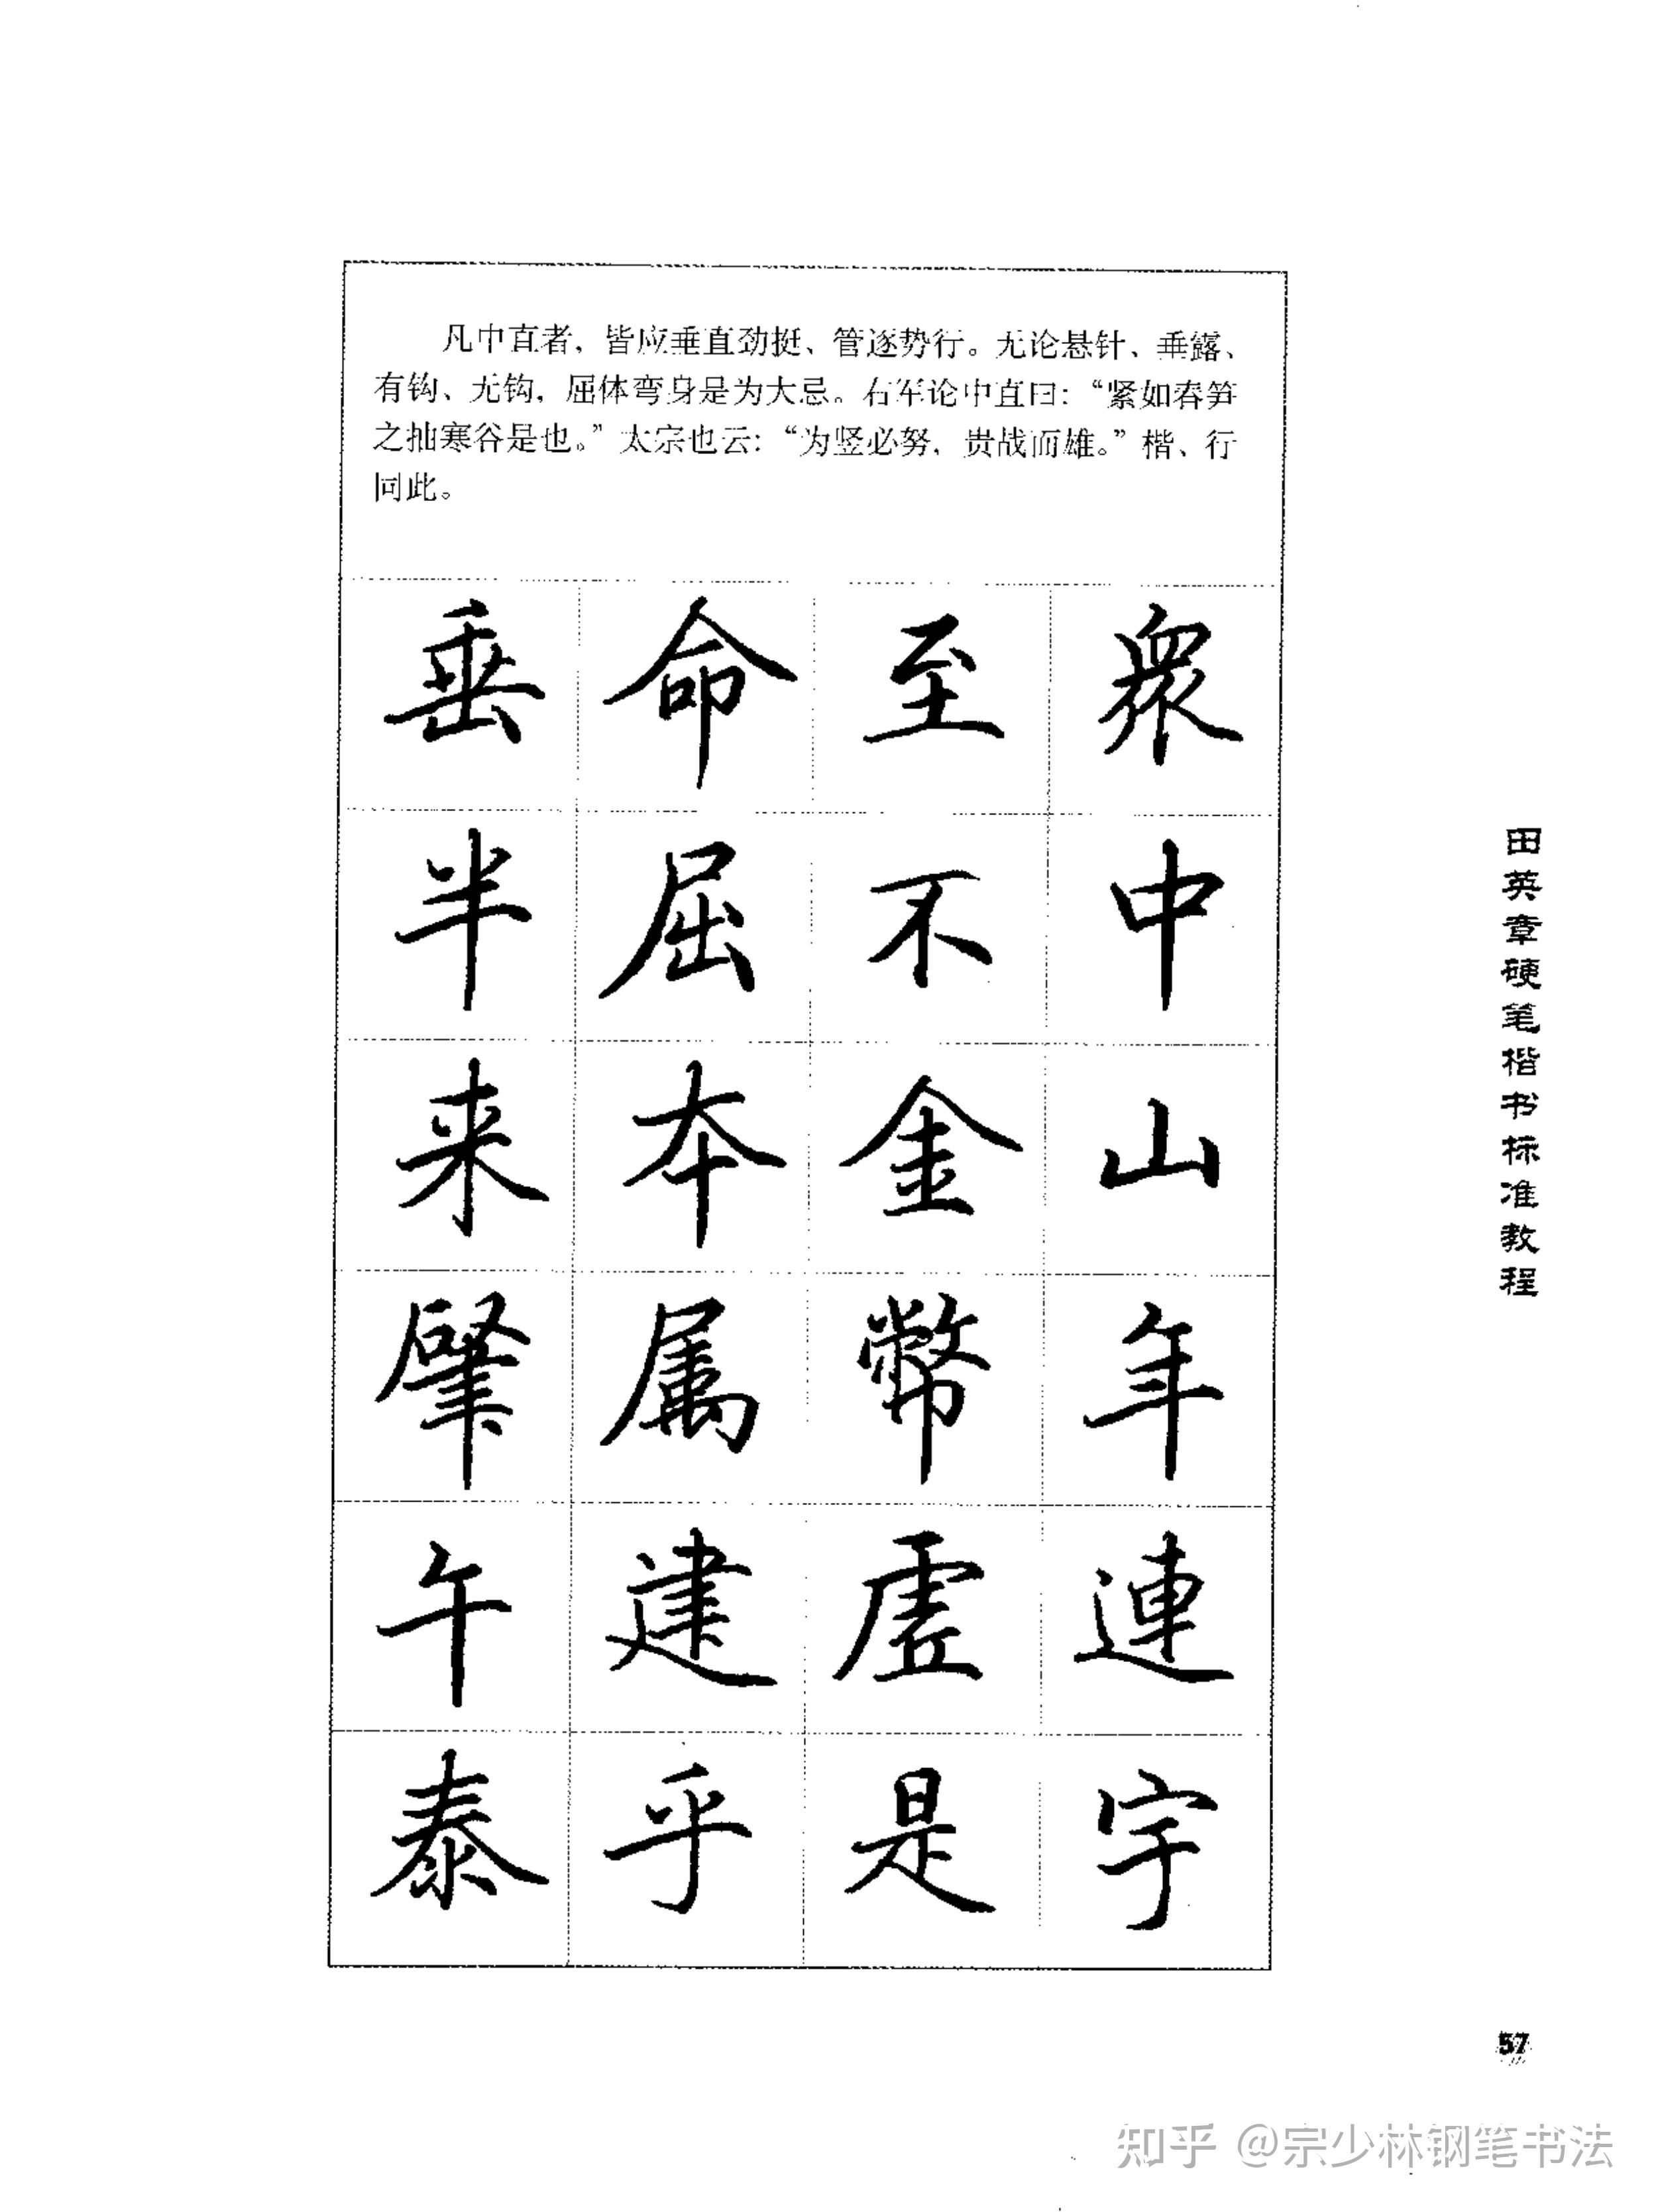 凡中直者，皆应垂直劲挺、管逐势行。无论悬针、垂露、
有钩、无钩，屈体弯身是为大忌。右军论中直曰：“紧如春笋
之抽寒谷是也。”太宗也云：“为竖必努，贵战而雄。”楷、行
同此。
垂命至衆
半屈不中
来本金山
肇属幣年
午建虚連
泰乎是字
田英章硬笔楷书标准教程
57
知乎 @宗少林钢笔书法